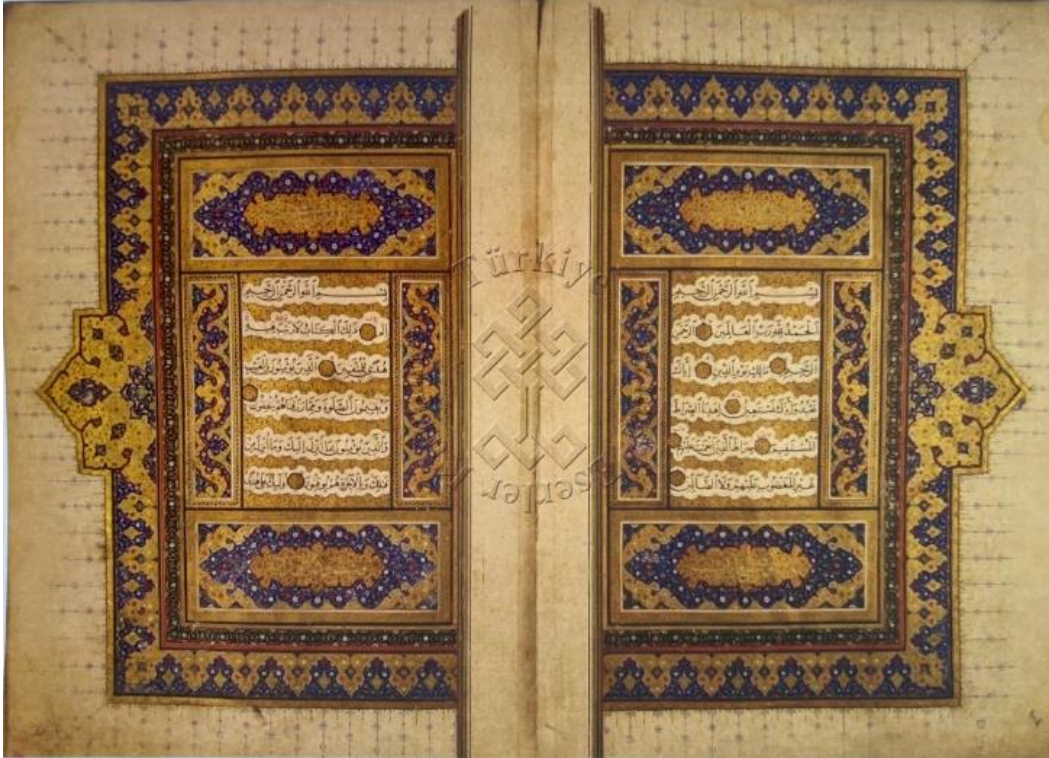 بِسْمِ اللهِ الرَّحْمٰنِ الرَّحِيمِ
اَلْحَمْدُ لِلّٰهِ رَبِّ الْعَالَمِينَ الرَّحْمٰنِ
الرَّحِيمِ مَالِكِ يَوْمِ الدِّينِ اِيَّاكَ
نَعْبُدُ وَاِيَّاكَ نَسْتَعِينُ اِهْدِنَا الصِّرَاطَ
الْمُسْتَقِيمَ صِرَاطَ الَّذِينَ اَنْعَمْتَ عَلَيْهِمْ
غَيْرِ الْمَغْضُوبِ عَلَيْهِمْ وَلَا الضَّالِّينَ
بِسْمِ اللهِ الرَّحْمٰنِ الرَّحِيمِ
الم ذٰلِكَ الْكِتَابُ لَا رَيْبَ فِيهِ
هُدًى لِلْمُتَّقِينَ الَّذِينَ يُؤْمِنُونَ بِالْغَيْبِ
وَيُقِيمُونَ الصَّلٰوةَ وَمِمَّا رَزَقْنَاهُمْ يُنْفِقُونَ
وَالَّذِينَ يُؤْمِنُونَ بِمَا اُنْزِلَ اِلَيْكَ وَمَا اُنْزِلَ مِنْ
قَبْلِكَ وَبِالْاٰخِرَةِ هُمْ يُوقِنُونَ اُولٰئِكَ عَلٰى هُدًى
Türkiye